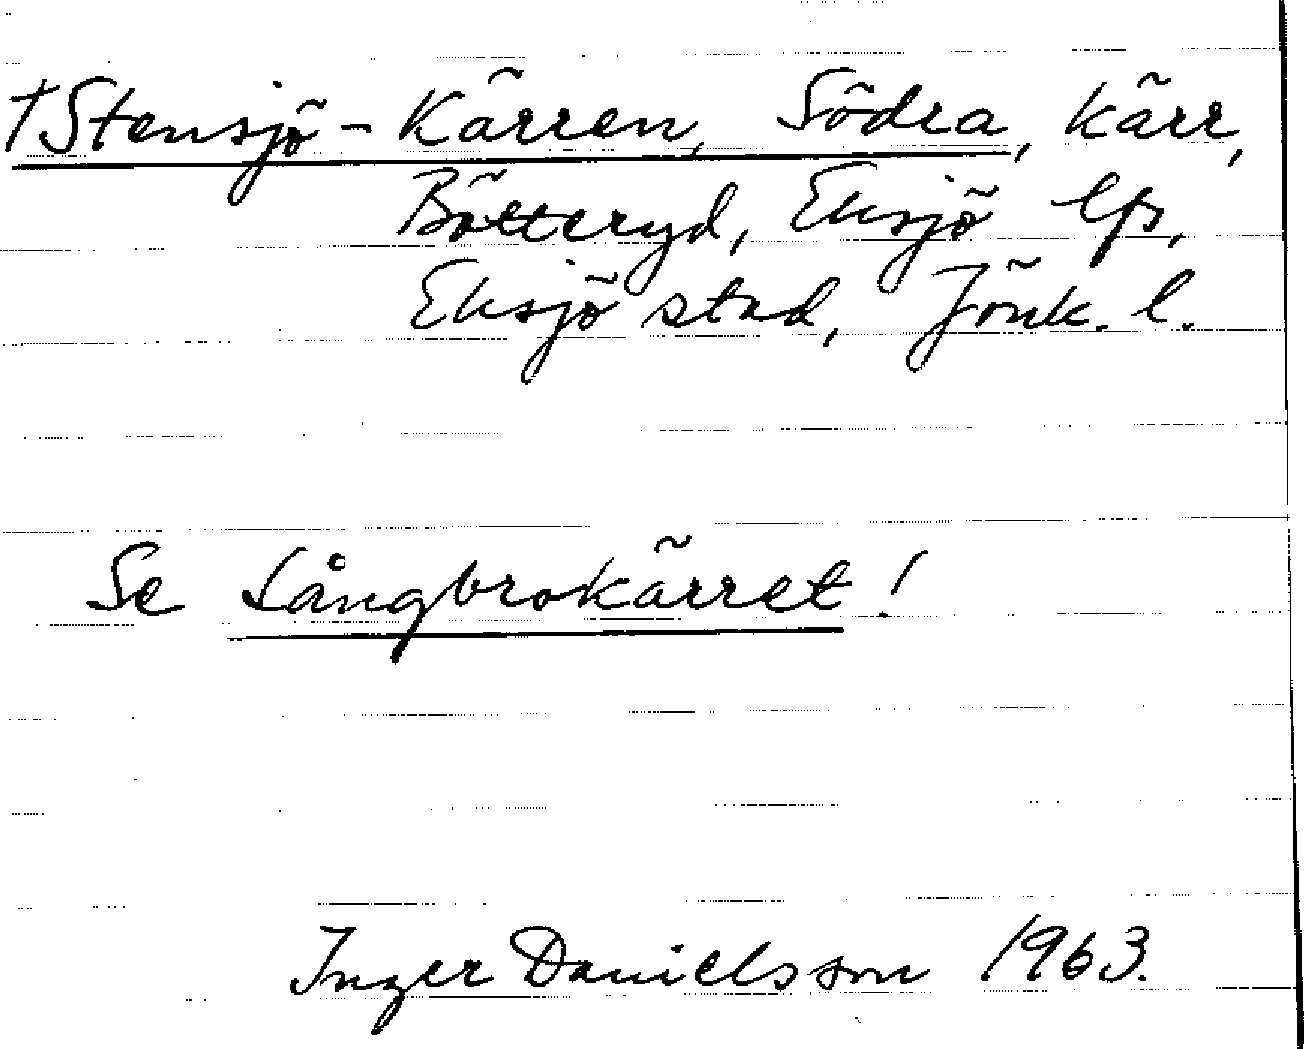 †Stensjö-Kärren, Södra, kärr,
Bötteryd, Eksjö lfs,
Eksjö stad, Jönk. l.
Se Långbrokärret!
Inger Danielsson 1963.